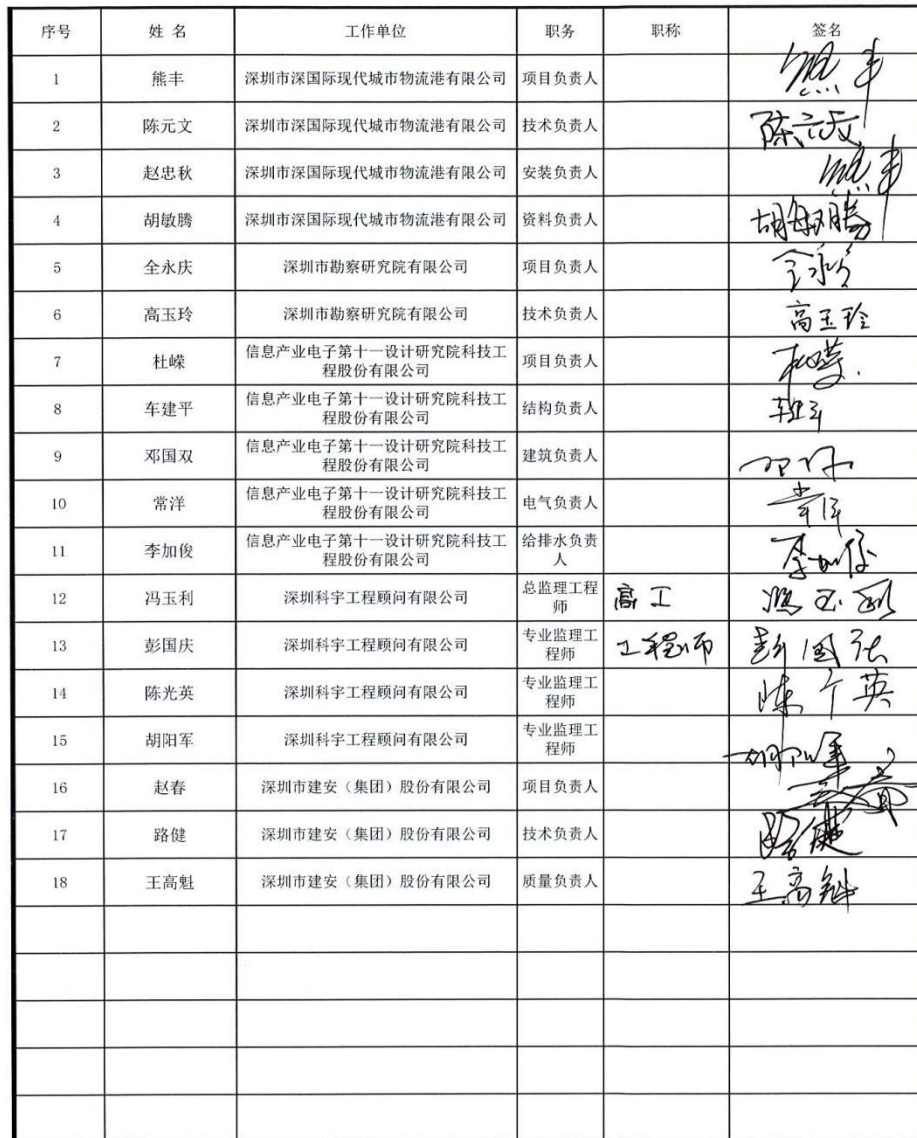 序号 姓 名 工作单位 职务 职称 签名
1 熊丰 深圳市深国际现代城市物流港有限公司 项目负责人 熊丰
2 陈元文 深圳市深国际现代城市物流港有限公司 技术负责人 陈元文
3 赵忠秋 深圳市深国际现代城市物流港有限公司 安装负责人 熊丰
4 胡敏腾 深圳市深国际现代城市物流港有限公司 资料负责人 胡敏腾
5 全永庆 深圳市勘察研究院有限公司 项目负责人 全永庆
6 高玉玲 深圳市勘察研究院有限公司 技术负责人 高玉玲
7 杜嵘 信息产业电子第十一设计研究院科技工
程股份有限公司 项目负责人 杜嵘
8 车建平 信息产业电子第十一设计研究院科技工
程股份有限公司 结构负责人
9 邓国双 信息产业电子第十一设计研究院科技工
程股份有限公司 建筑负责人
10 常洋 信息产业电子第十一设计研究院科技工
程股份有限公司 电气负责人 常洋
11 李加俊 信息产业电子第十一设计研究院科技工
程股份有限公司 给排水负责
人 李加俊
12 冯玉利 深圳科宇工程顾问有限公司 总监理工程
师 高工 冯玉利
13 彭国庆 深圳科宇工程顾问有限公司 专业监理工
程师 工程师 彭国庆
14 陈光英 深圳科宇工程顾问有限公司 专业监理工
程师 陈光英
15 胡阳军 深圳科宇工程顾问有限公司 专业监理工
程师 胡阳军
16 赵春 深圳市建安（集团）股份有限公司 项目负责人 赵春
17 路健 深圳市建安（集团）股份有限公司 技术负责人 路健
18 王高魁 深圳市建安（集团）股份有限公司 质量负责人 王高魁